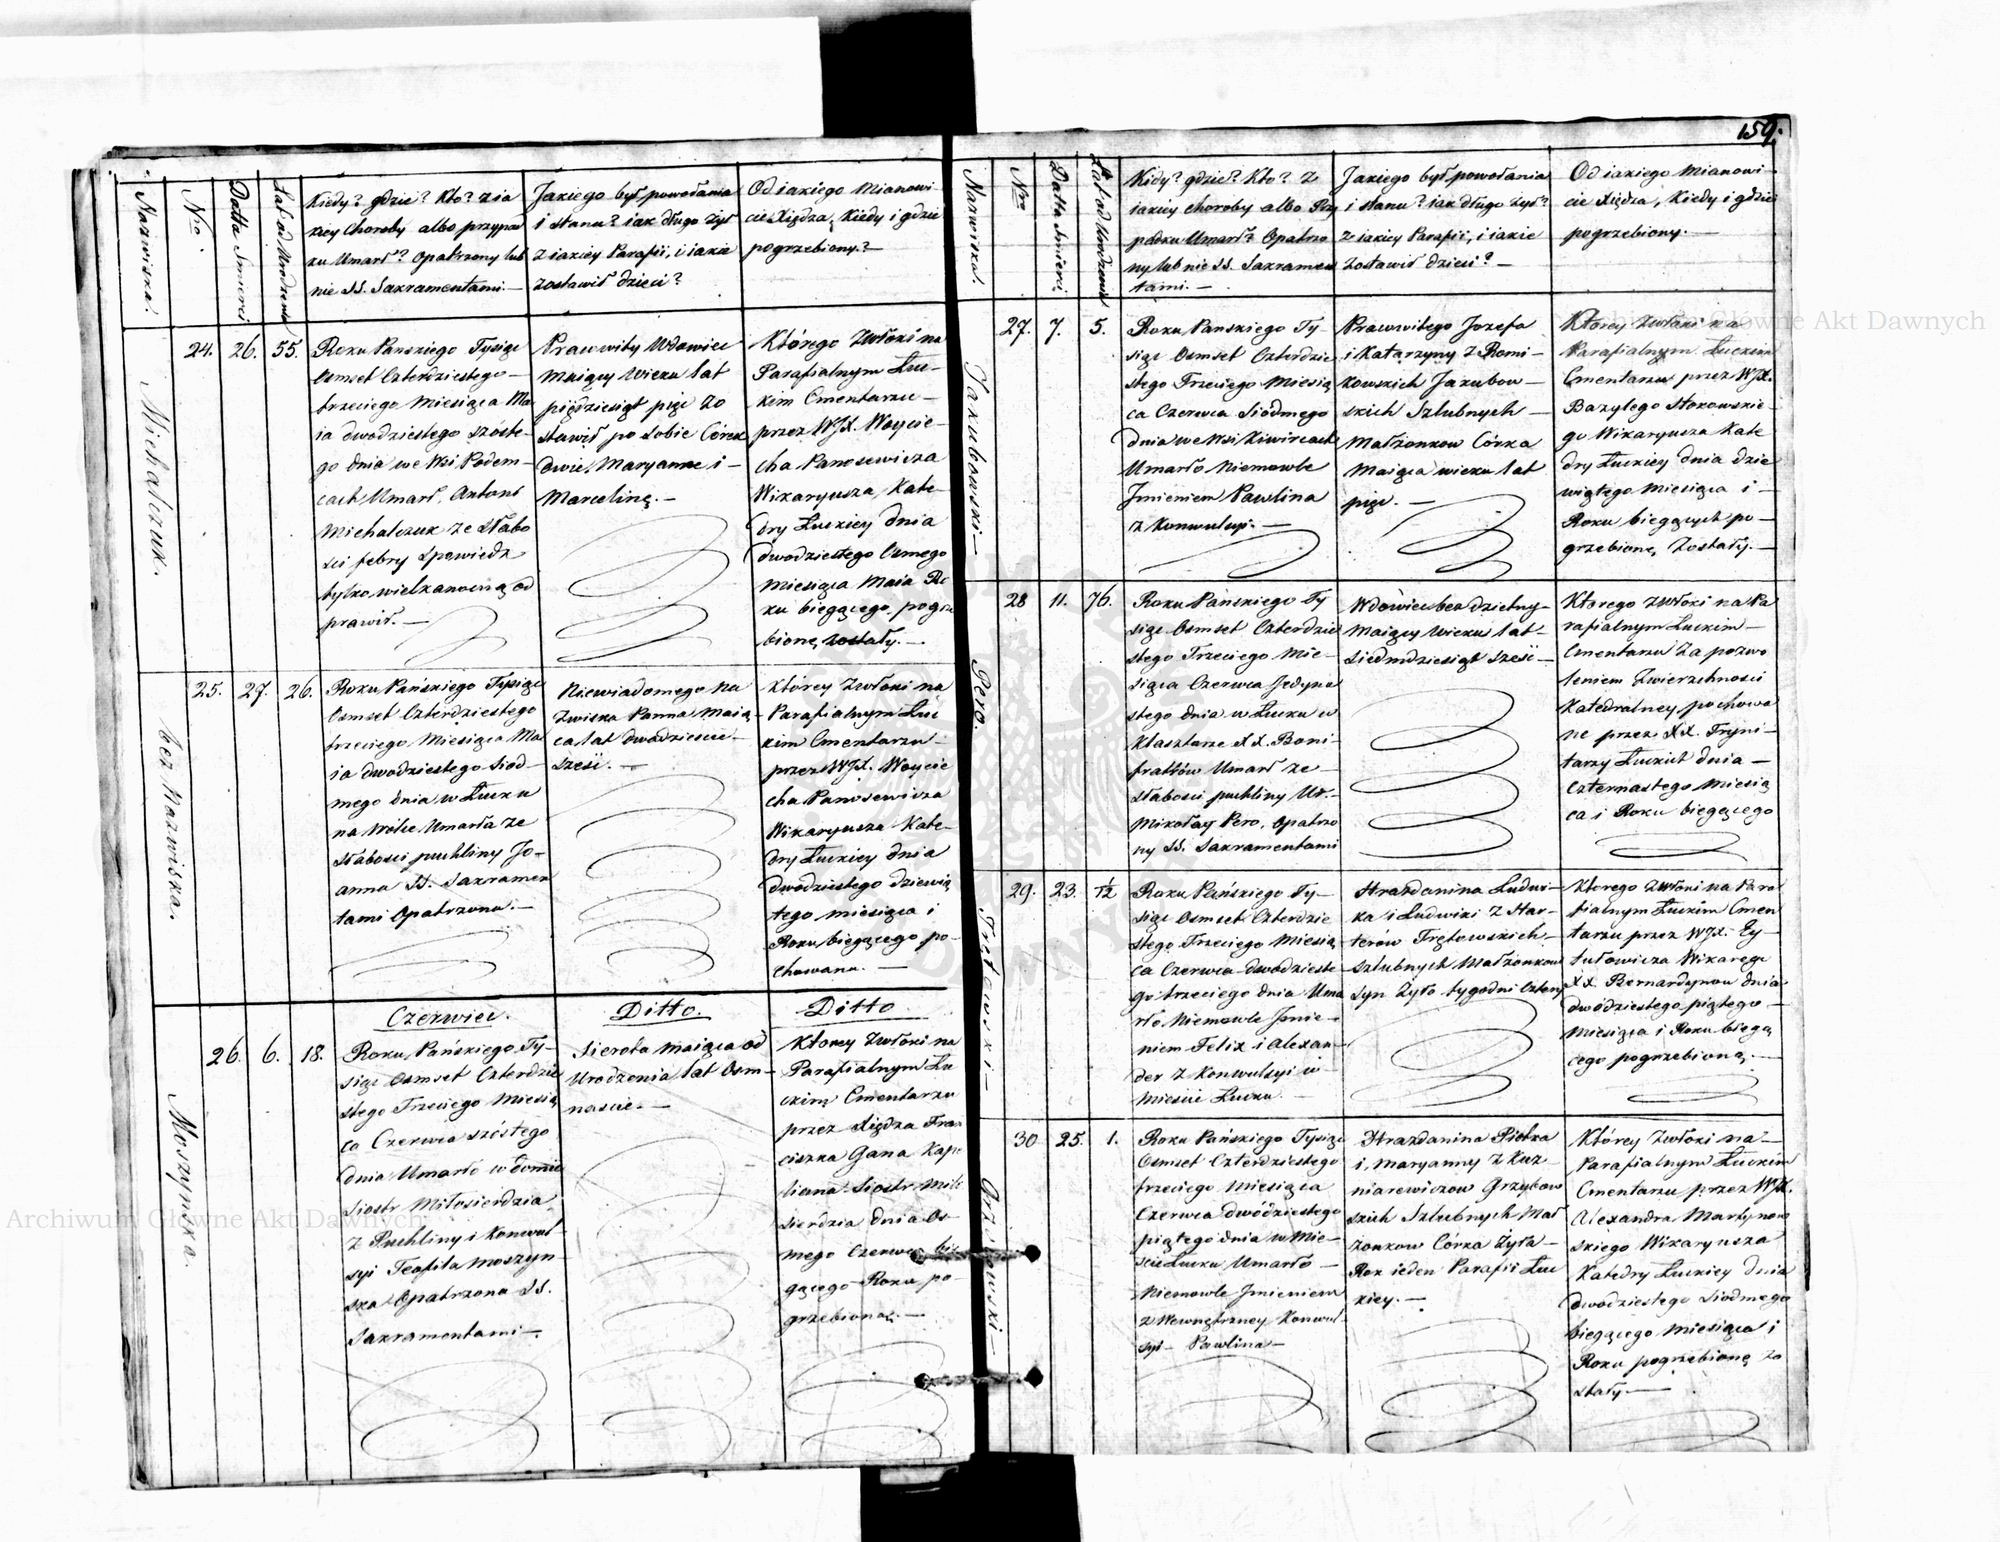 159.
Nazwiska.
Nro
Datta Śmierci
Lat od Urodzenia
Kiedy? gdzie? Kto? z ia
kiey Choroby albo przypad
ku Umarł? Opatrzony lub
nie SS. Sakramentami. —
Jakiego był powołania
i stanu? iak długo żył
z iakiey Parafii, i iakie
zostawił dzieci?
Od iakiego Mianowi
cie Xiędza, Kiedy i gdzie
pogrzebiony? —
Michalczuk.
24. 26. 55.
Roku Pańskiego Tysiąc
Osmset Czterdziestego —
trzeciego Miesiąca Ma
ia dwodziestego szoste-
go dnia we Wsi Podem-
cach Umarł Antoni
Michalczuk ze słabo
sci febry Spowiedz
tylko wielkanocną od
prawił. —
Prawowity Wdowiec
maiący wieku lat
pięćdziesiąt pięć zo
stawił po sobie Córek
dwie, Maryannę i —
Marcelinę. —
Którego Zwłoki na
Parafialnym Łuc-
kim Cmentarzu —
przez WJX. Woycie-
cha Panosewicza
Wikaryusza Kate-
dry Łuckiey dnia
dwodziestego Osmego
Miesiąca Maia Ro
ku biegącego pogrze
bione zostały. —
bez Nazwiska.
25. 27. 26.
Roku Pańskiego Tysiąc
Osmset Czterdziestego
trzeciego Miesiąca Ma
ia dwodziestego Siod-
mego dnia w Łucku
na Wólce Umarła ze
słabosci puchliny Jo-
anna SS. Sakramen
tami Opatrzona. —
Niewiadomego Na
zwiska Panna Maią-
ca lat dwadziescie —
szesć. —
Którey Zwłoki na
Parafialnym Łuc
kim Cmentarzu —
przez WJX. Woycie
cha Panosewicza
Wikaryusza Kate-
dry Łuckiey dnia
dwodziestego dziewią
tego miesiąca i
Roku biegącego po-
chowana. —
Czerwiec.
Ditto.
Ditto
Moszyńska.
26. 6. 18.
Roku Pańskiego Ty-
siąc Osmset Czterdzie
stego Trzeciego Miesią
ca Czerwca szóstego
dnia Umarła w domie
Siostr Miłosierdzia
z Puchliny i Konwul-
syi Teofila Moszyn-
ska Opatrzona SS.
Sakramentami —.
Sierota maiąca od
Urodzenia lat Osm-
nascie. —
Którey Zwłoki na
Parafialnym Łu
ckim Cmentarzu
przez Xiędza Fran
ciszka Gana Kape
liana Siostr Miło
sierdzia dnia Os-
mego Czerwca bie
gącego Roku po-
grzebiona. —
Nazwiska.
Nro
Datta Śmierci
Lat od Urodzenia
Kiedy? gdzie? Kto? z
iakiey choroby albo Przy
padku Umarł? Opatrzo
ny lub nie SS. Sakramen
tami. —
Jakiego był powołania
i stanu? iak długo żył?
z iakiey Parafii, i iakie
zostawił dzieci? —
Od iakiego Mianowi-
cie Xiędza, Kiedy i gdzie
pogrzebiony. —
Jakubowski —
27. 7. 5.
Roku Panskiego Ty-
siąc Osmset Czterdzie
stego Trzeciego Miesią
ca Czerwca Siodmego
dnia we Wsi Kiwircach
Umarło Niemowle
Jmieniem Pawlina
z Konwulsyi. —
Prawowitego Jozefa
i Katarzyny z Romi-
kowskich Jakubow-
skich Szlubnych —
Małżonkow Córka
Maiąca wieku lat
pięć. —
Ktorey Zwłoki na
Parafialnym Łuckim
Cmentarzu przez WJX.
Bazylego Stokowskie-
go Wikaryusza Kate
dry Łuckiey dnia dzie
wiątego Miesiąca i —
Roku biegących po-
grzebione Zostały. —
Pero.
28 11. 76.
Roku Pańskiego Ty
siąc Osmset Czterdzie
stego Trzeciego Mie-
siąca Czerwca Jedyna
stego dnia w Łucku w
Klasztorze XX. Boni-
fratrów Umarł ze —
słabosci puchliny Ur.
Mikołay Pero, Opatrzo
ny SS. Sakramentami
Wdowiec bez dzietny —
Maiący Wieku lat —
Siedmdziesiąt szesć —
Ktorego Zwłoki na Pa
rafialnym Łuckim —
Cmentarzu za pozwo
leniem Zwierzchnosci
Katedralney pochowa
ne przez XX. Tryni-
tarzy Łuckich dnia —
czternastego Miesią
ca i Roku biegącego
Trętowski —
29. 23. 1/12
Roku Pańskiego Ty-
siąc Osmset Czterdzie
stego Trzeciego Miesią
ca Czerwca dwodzieste-
go trzeciego dnia Uma
rło Niemowle Jmie-
niem Felix i Alexan-
der z Konwulsyi w
Miescie Łucku. —
Hrażdanina Ludwi-
ka i Ludwiki z Har-
terów Trętowskich
szlubnych Małżonkow
syn Żyło tygodni Cztery
Ktorego Zwłoki na Para
fialnym Łuckim Cmen
tarzu przez WJX. Ey-
tutowicza Wikarego
XX. Bernardynow dnia
dwódziestego piątego —
Miesiąca i Roku biegą
cego pogrzebioną. —
Grzybowski —
30 25. 1.
Roku Pańskiego Tysiąc
Osmset Czterdziestego
trzeciego Miesiąca
Czerwca dwódziestego
piątego dnia w Mie-
scie Łucku Umarło —
Niemowle Jmieniem
z Wewnętrzney Konwul-
syi — Pawlina —
Hrażdanina Piotra
i Maryanny z Kuz-
niarewiczow Grzybow
skich Szlubnych Mał
żonkow Córka Żyła
Rok ieden Parafii Łuc
kiey. —
Którey Zwłoki na —
Parafialnym Łuckim
Cmentarzu przez WJX.
Alexandra Martynow
skiego Wikaryusza
Katedry Łuckiey dnia
dwodziestego Siodmego
biegącego Miesiąca i
Roku pogrzebioną zo
stały. —
Archiwum Główne Akt Dawnych
Archiwum Główne Akt Dawnych